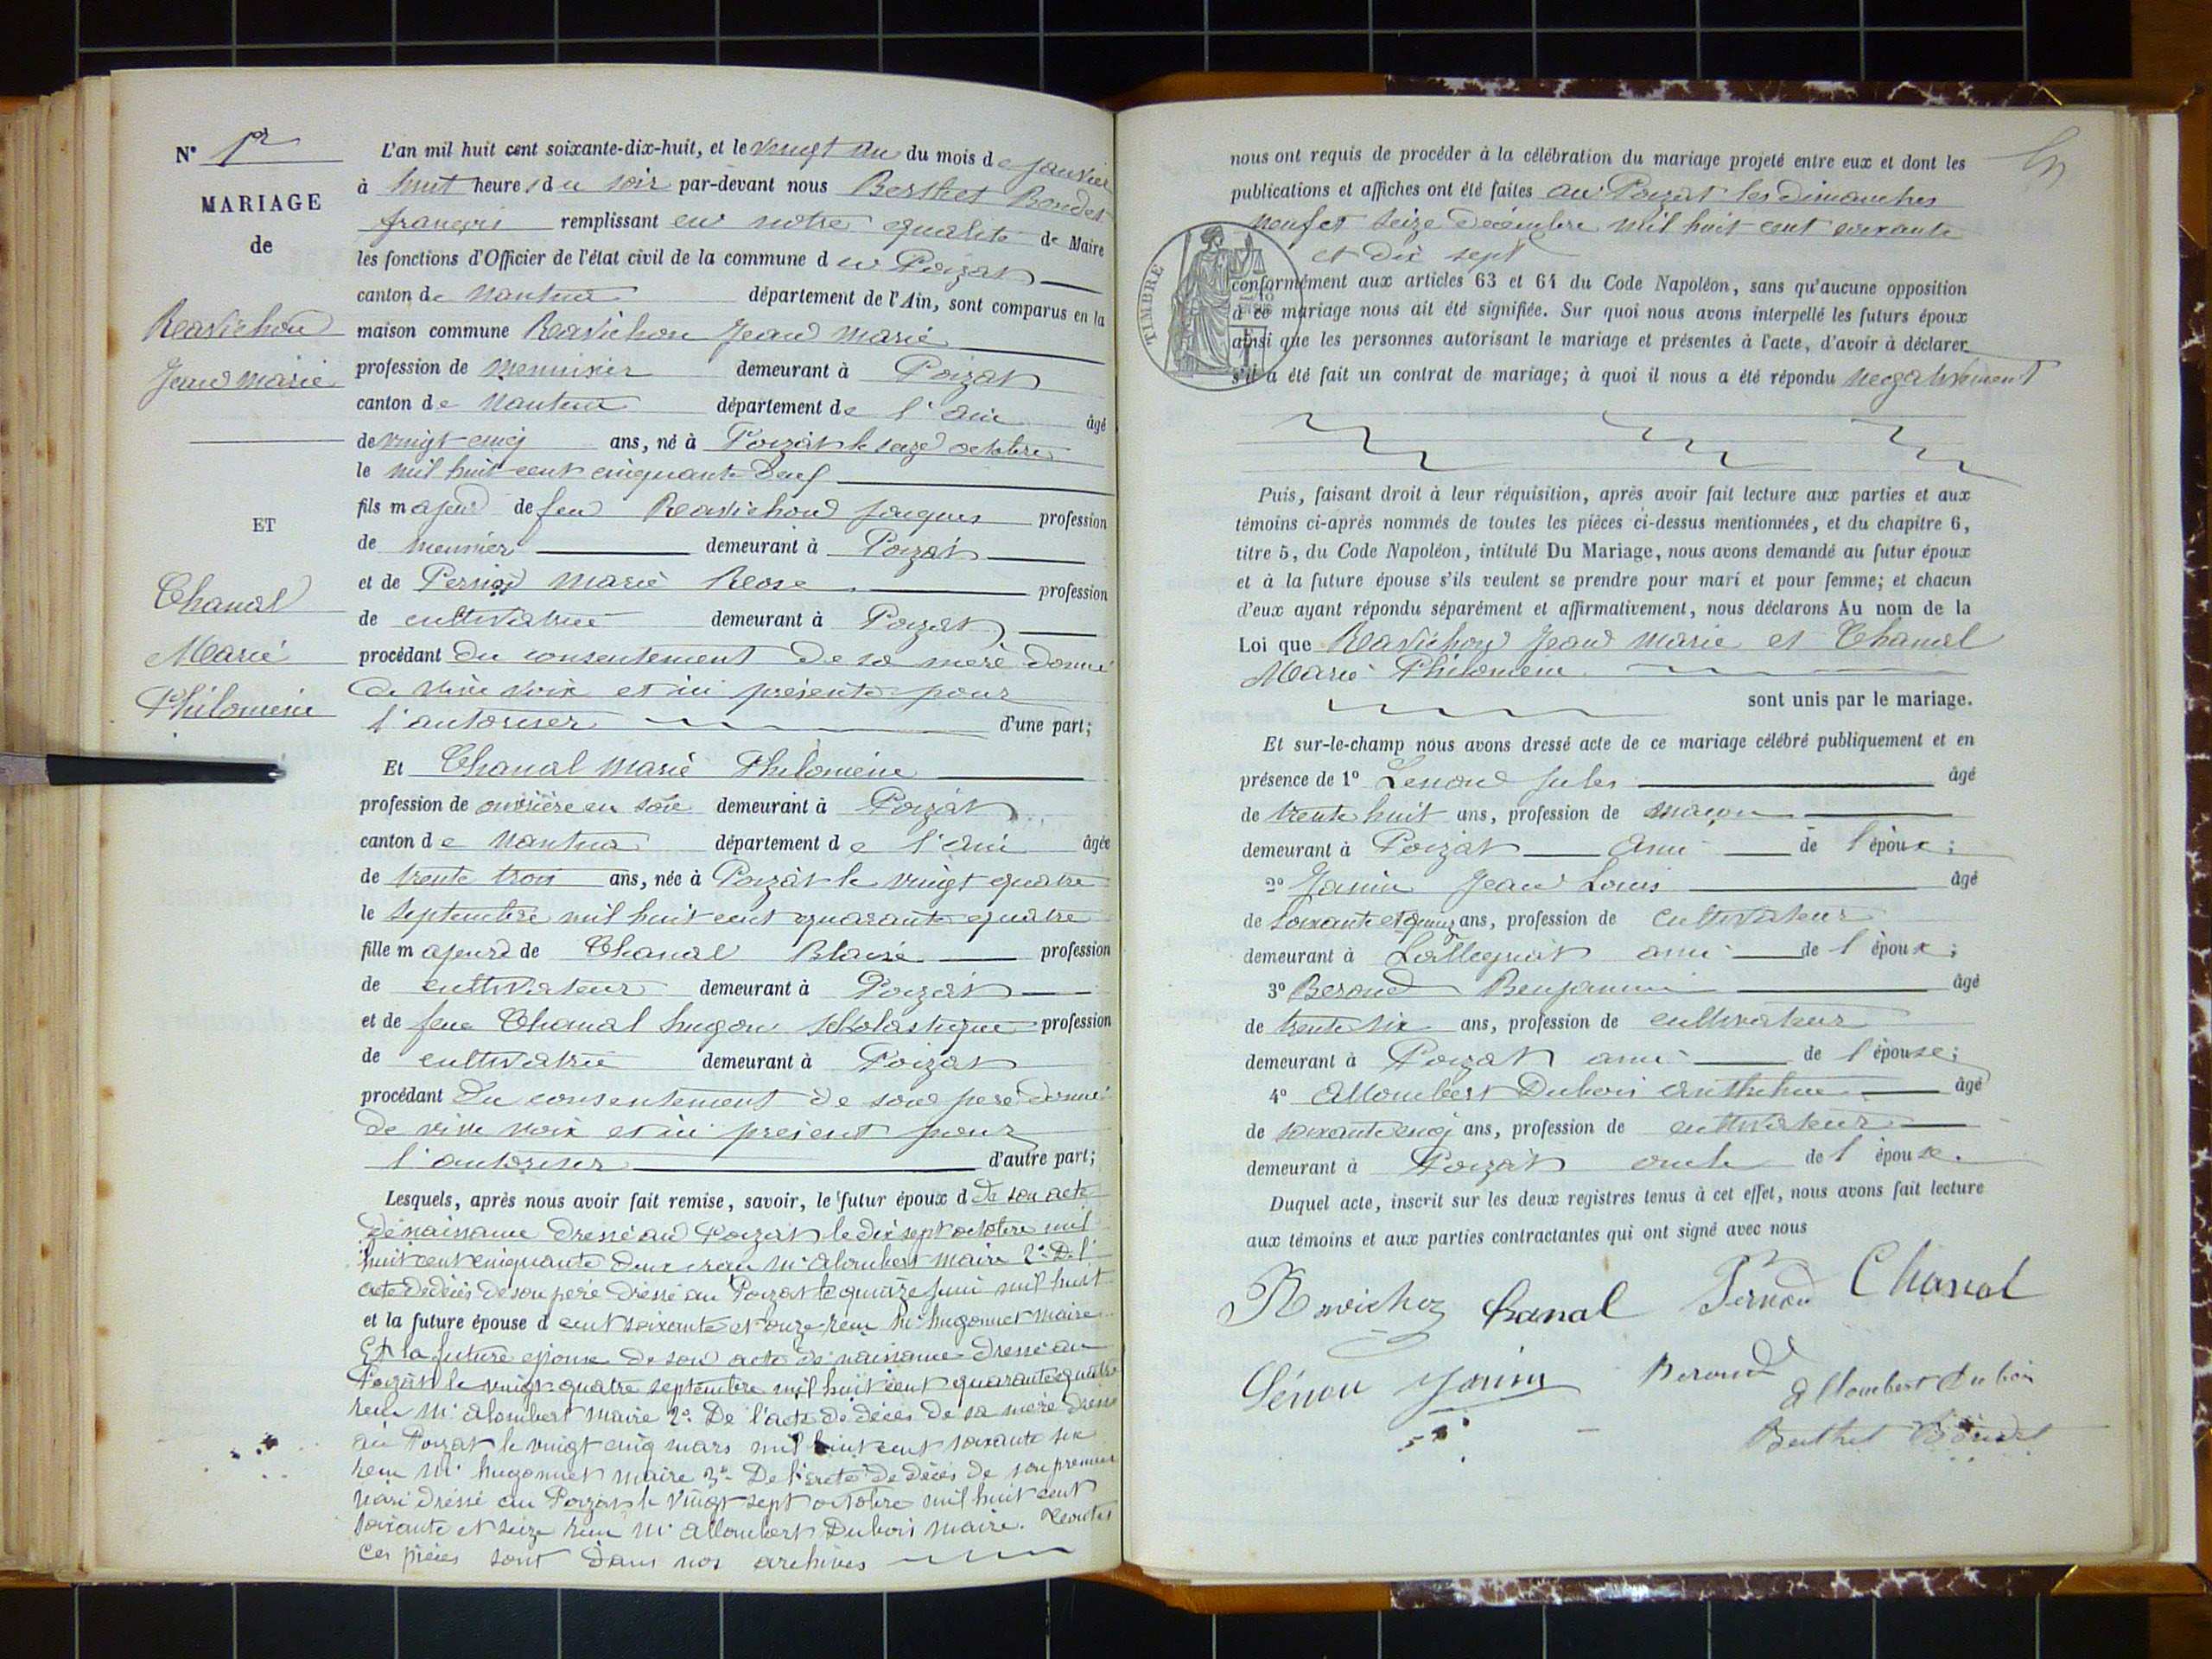 N° 1er
MARIAGE
de
Ravichon
Jean marie
ET
Chanal
Marie
Philomène
L'an mil huit cent soixante-dix-huit, et le vingt un du mois de janvier
à huit heures du soir par-devant nous Berthet Bondet
françois remplissant en notre qualité de Maire
les fonctions d'Officier de l'état civil de la commune du Poizat
canton de Nantua département de l'Ain, sont comparus en la
maison commune Ravichon Jean Marie
profession de menuisier demeurant à Poizat
canton de Nantua département de l'ain âgé
de vingt cinq ans, né à Poizat le seize octobre
le mil huit cent cinquante deux
fils majeur de feu Ravichon Jacques profession
de meunier demeurant à Poizat
et de Pernod Marie Rose profession
de cultivatrice demeurant à Poizat
procédant du consentement de sa mère donné
de vive voix et ici présente pour
l'autoriser d'une part;
Et Chanal Marie Philomène
profession de ouvrière en soie demeurant à Poizat
canton de Nantua département de l'ain âgée
de trente trois ans, née à Poizat le vingt quatre
le septembre mil huit cent quarante quatre
fille majeure de Chanal Blaise profession
de cultivateur demeurant à Poizat
et de feue Chanal hugon Scholastique profession
de cultivatrice demeurant à Poizat
procédant Du consentement de son père donné
de vive voix et ici présent pour
l'autoriser d'autre part;
Lesquels, après nous avoir fait remise, savoir, le futur époux d de son acte
de naissance dressé au Poizat le dix sept octobre mil
huit cent cinquante deux reçu Mr Alombert maire 2° De l'
acte de décès de son père dressé au Poizat le quinze juin mil huit
et la future épouse d cent soixante et onze reçu Mr hugonnet maire
Et la future épouse de son acte de naissance dressé au
Poizat le vingt quatre septembre mil huit cent quarante quatre
reçu Mr Alombert maire 2° De l'acte de décès de sa mère dressé
au Poizat le vingt cinq mars mil huit cent soixante six
reçu Mr hugonnet maire 3° De l'acte de décès de son premier
mari dressé au Poizat le vingt sept octobre mil huit cent
soixante et seize reçu Mr Allombert Dubois maire. Toutes
ces pièces sont dans nos archives
nous ont requis de procéder à la célébration du mariage projeté entre eux et dont les
publications et affiches ont été faites au Poizat les dimanches
neuf et seize décembre mil huit cent soixante
et dix sept
TIMBRE
conformément aux articles 63 et 64 du Code Napoléon, sans qu'aucune opposition
à ce mariage nous ait été signifiée. Sur quoi nous avons interpellé les futurs époux
ainsi que les personnes autorisant le mariage et présentes à l'acte, d'avoir à déclarer
s'il a été fait un contrat de mariage; à quoi il nous a été répondu négativement
Puis, faisant droit à leur réquisition, après avoir fait lecture aux parties et aux
témoins ci-après nommés de toutes les pièces ci-dessus mentionnées, et du chapitre 6,
titre 5, du Code Napoléon, intitulé Du Mariage, nous avons demandé au futur époux
et à la future épouse s'ils veulent se prendre pour mari et pour femme; et chacun
d'eux ayant répondu séparément et affirmativement, nous déclarons Au nom de la
Loi que Ravichon Jean Marie et Chanal
Marie Philomène
sont unis par le mariage.
Et sur-le-champ nous avons dressé acte de ce mariage célébré publiquement et en
présence de 1° Lenoud Jules âgé
de trente huit ans, profession de maçon
demeurant à Poizat ami de l'époux;
2° Janin Jean Louis âgé
de soixante et quinze ans, profession de cultivateur
demeurant à Lalleyriat ami de l'époux;
3° Beroud Benjamin âgé
de trente six ans, profession de cultivateur
demeurant à Poizat ami de l'épouse;
4° Allombert Dubois Anthelme âgé
de soixante cinq ans, profession de cultivateur
demeurant à Poizat oncle de l'épouse.
Duquel acte, inscrit sur les deux registres tenus à cet effet, nous avons fait lecture
aux témoins et aux parties contractantes qui ont signé avec nous
Ravichon Chanal Pernod Chanal
Lénou Janin Beroud allombert Dubois
Berthet Bondet